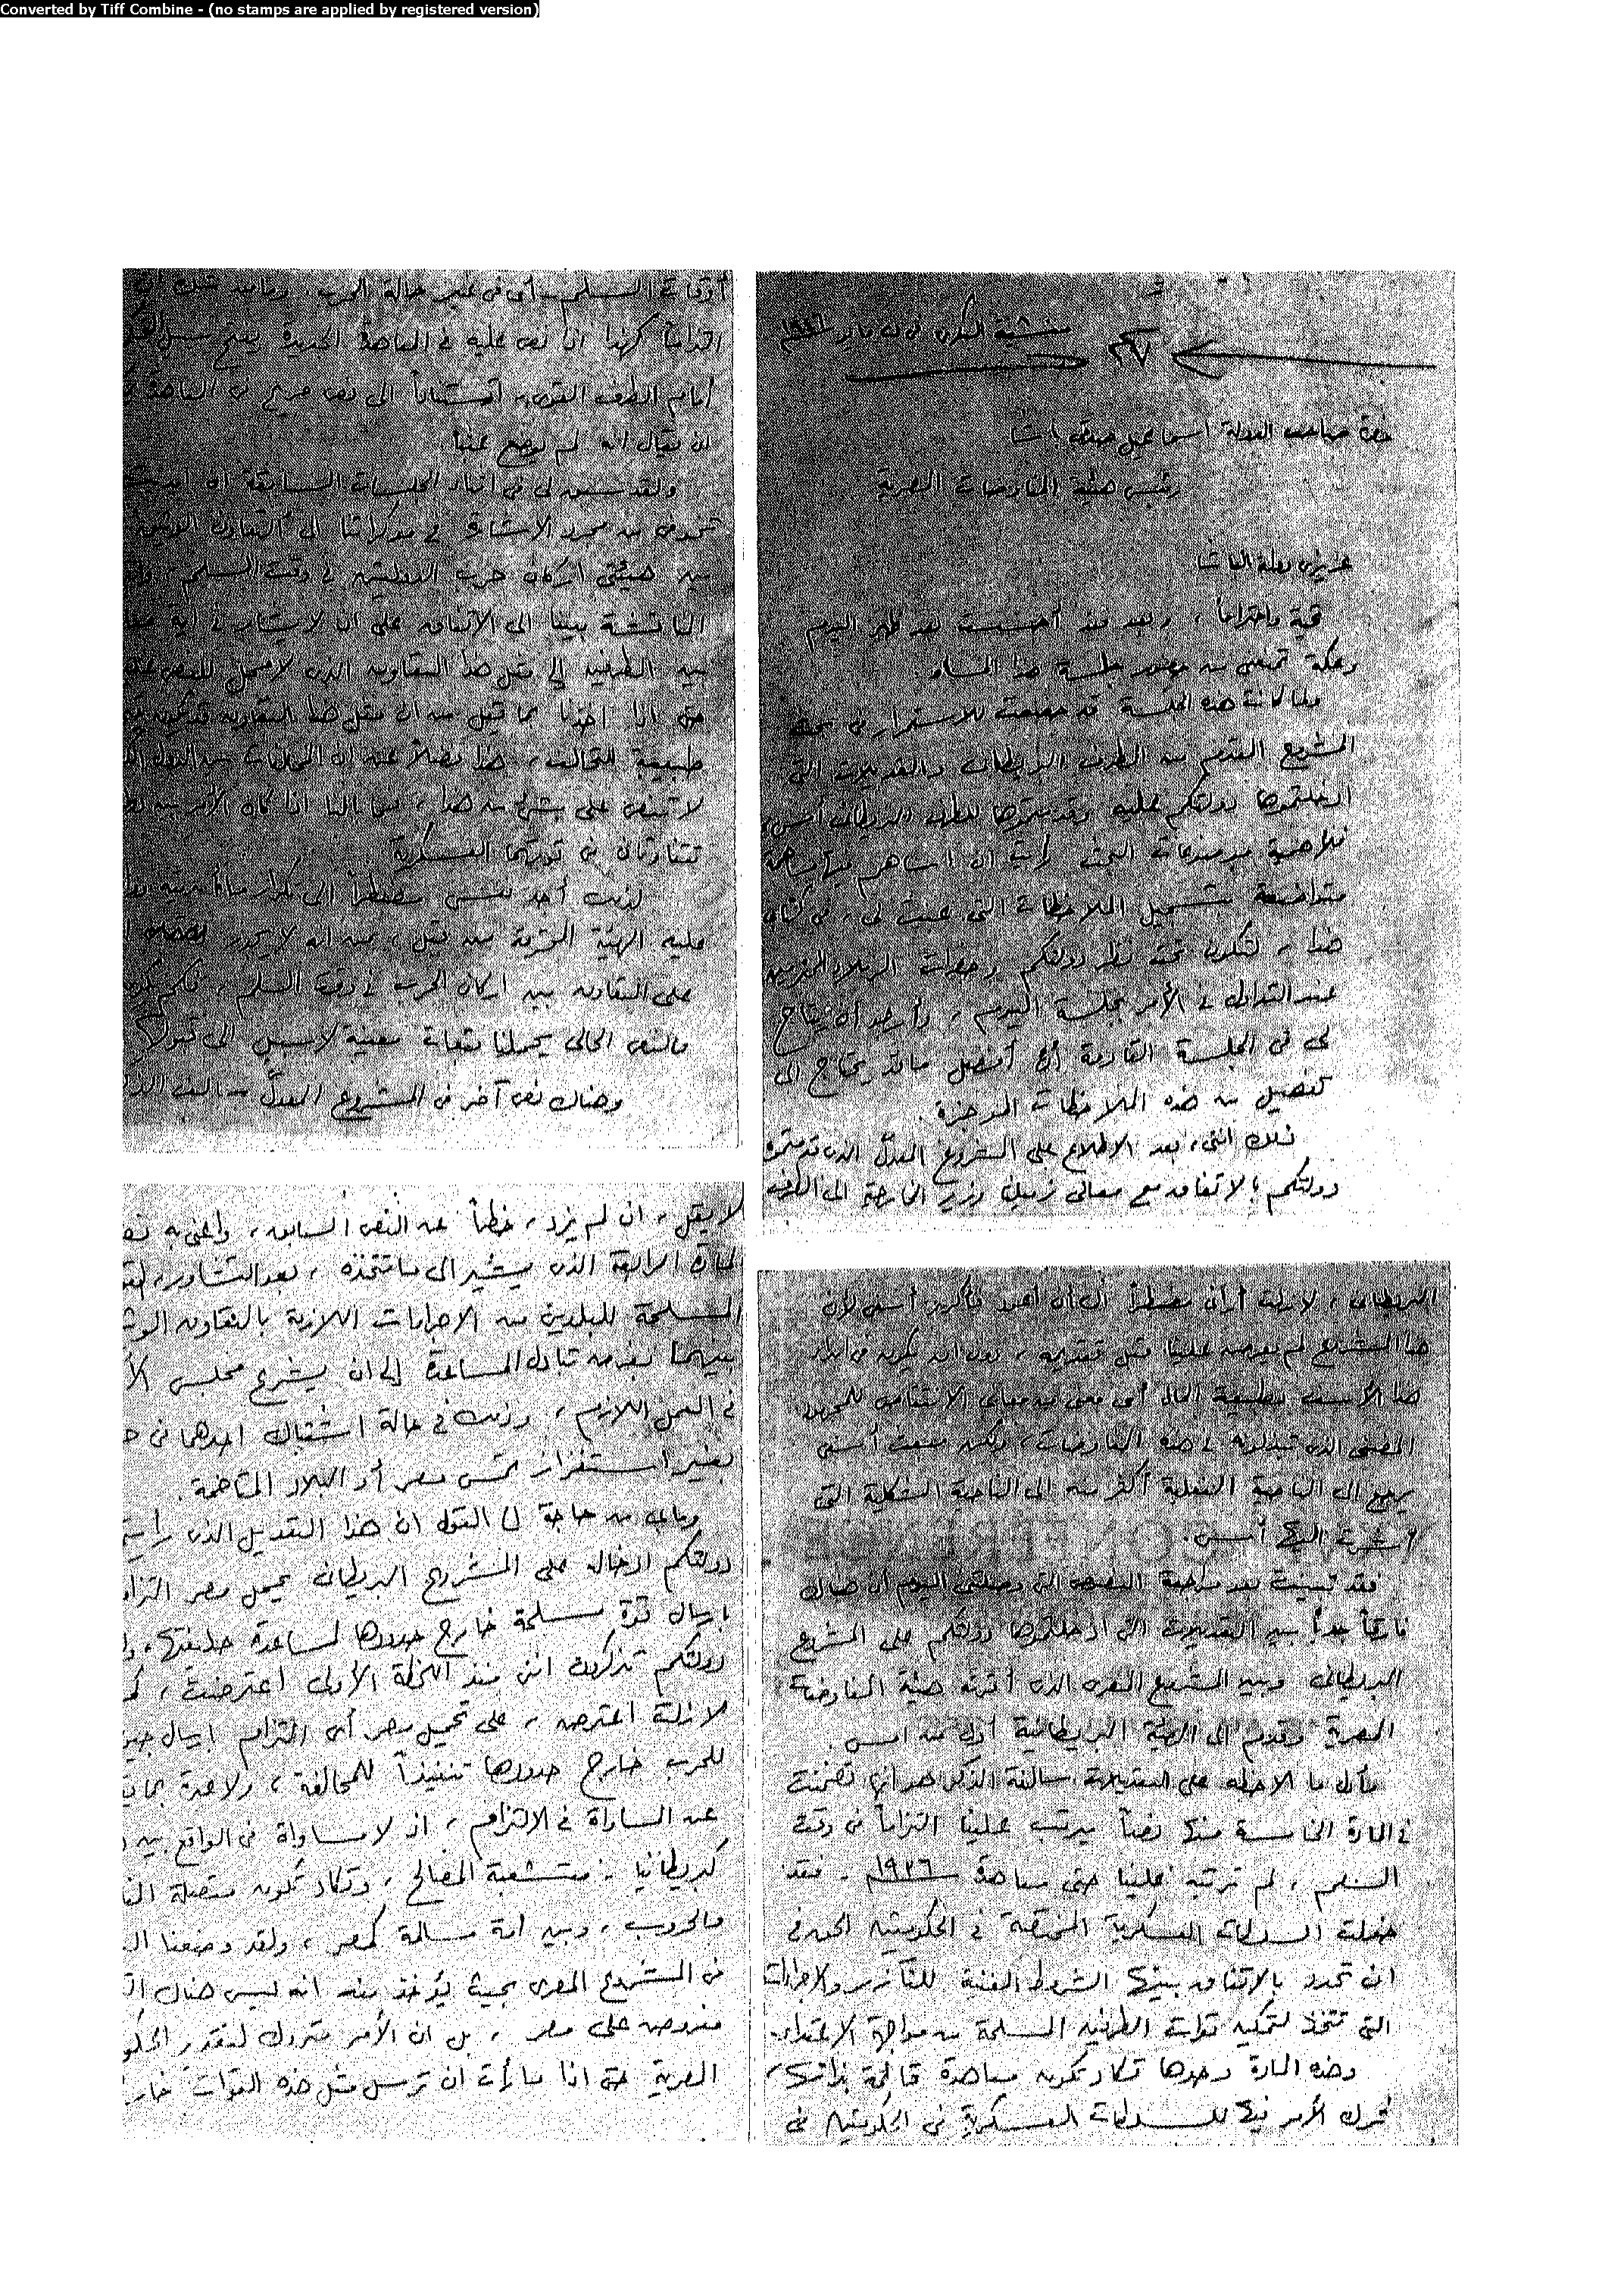 Converted by Tiff Combine - (no stamps are applied by registered version)
منشية البكري في
حضرة صاحب الدولة اسماعيل صدقي باشا
رئيس هيئة المفاوضات المصرية
عزيزي دولة الباشا
تحية واحتراما، وبعد فقد أحسست بعد ظهر اليوم
وعكة تمنعني من حضور جلسة هذا المساء.
ولما كانت هذه الجلسة قد خصصت للاستمرار في بحث
المشروع المقدم من الطرف البريطاني والتعديلات التي
ادخلتموها دولتكم عليه وقدمتموها للطرف البريطاني أمس،
فلأهمية موضوعات البحث رأيت ان اساهم مساهمة
متواضعة بتسجيل الملاحظات التي عنت لي، في كتابي
هذا، لتكون تحت نظر دولتكم وحضرات الزملاء المحترمين
عند التداول في الأمر بجلسة اليوم، وأرجو أن يتاح
لي في الجلسة القادمة أن أفصل ما قد يحتاج الى
تفصيل من هذه الملاحظات الموجزة.
ذلك انني، بعد الاطلاع على المشروع المعدل الذي قدمتموه
دولتكم بالاتفاق مع معالي زميلي وزير الخارجية الى الطرف
البريطاني، لازلت أراني مضطرا الى أن أعود فأكرر أسفي لأن
هذا المشروع لم يعرض علينا قبل تقديمه، دون ان يكون في ابداء
هذا الأسف بطبيعة الحال أي معنى من معاني الانتقاص للمجهود
المضني الذي تبذلونه في هذه المفاوضات، ولكن مبعث أسفي
يرجع الى الناحية الفعلية أكثر منه الى الناحية الشكلية التي
أشرت اليها أمس.
فقد تبينت بعد مراجعة النصوص التي وصلتني اليوم أن هناك
فارقا جدا بين التعديلات التي ادخلتموها دولتكم على المشروع
البريطاني وبين المشروع المصري الذي أقرته هيئة المفاوضة
المصرية وقدم الى الهيئة البريطانية أول من امس.
وأول ما الاحظه على التعديلات سالفة الذكر هو أنها تضمنت
في المادة الخامسة منها نصا يرتب علينا التزاما في وقت
السلم، لم ترتبه علينا حتى معاهدة سنة ١٩٣٦م. فقد
خولت السلطات العسكرية المختصة في الحكومتين الحق في
ان تحدد بالاتفاق بينها الشروط الفنية للتآزر والاجراءات
التي تتخذ لتمكين قوات الطرفين المسلحة من مواجهة الاعتداء.
وهذه المادة وحدها تكاد تكون معاهدة قائمة بذاتها،
تحرك الأمر فيها للسلطات العسكرية في الحكومتين في
أوقات السلم، أي في غير حالة الحرب. وما من شك ان
التزاما كهذا اذا نص عليه في المعاهدة الجديدة يفتح سبيل
أمام الطرف القوي، استنادا الى نص صريح في المعاهدة
لن يقال انه لم يوضع عبثا.
ولقد سبق لي في اثناء الجلسات السابقة ان ابديت
تخوفي من مجرد الاشارة في مذكراتنا الى التعاون الوثيق
بين هيئتي اركان حرب الدولتين في وقت السلم،
المناقشة بيننا الى الاتفاق على ان لا يشار في أية
بين الطرفين الى مثل هذا التعاون الذي لا محل للنص عليه
حتى اذا أخذنا بما قيل من أن مثل هذا التعاون قد تكون
طبيعة التحالف، هذا فضلا عن ان المحالفات بين الدول
لا تنص على شيء من هذا، فما بالنا اذا كان الأمر بين
تتفاوتان في قوتهما العسكرية
لذلك أجد نفسي مضطرا الى تكرار ما
عليه الهيئة الموقرة من قبل، من انه لا يجوز
على التعاون بين اركان الحرب في وقت السلم،
والنص الحالي يحملنا تبعات معينة لا سبيل الى قبولها
وهناك نص آخر في المشروع المعدل
لا يقل، ان لم يزد، خطأ عن النص السابق، واعني به نص
المادة الرابعة الذي يشير الى ما تتخذه، بعد التشاور،
المسلحة للبلدين من الاجراءات اللازمة بالتعاون
بينهما بغرض تبادل المساعدة الى ان يشرع مجلس
في العمل اللازم، وذلك في حالة اشتباك احدهما في
بغير استفزاز تمس مصر أو البلاد المتاخمة.
وما بي من حاجة الى القول ان هذا التعديل الذي رأيتم
دولتكم ادخاله على المشروع البريطاني يحمل مصر
بارسال قوة مسلحة خارج حدودها لمساعدة حليفتها،
دولتكم تذكرون انني منذ اللحظة الأولى اعترضت،
لازلت اعترض، على تحميل مصر أي التزام بارسال
للحرب خارج حدودها تنفيذا للمحالفة، ولا عبرة بما
عن المساواة في الالتزام، اذ لا مساواة في الواقع بين
كبريطانيا، متشعبة المصالح، وتكاد تكون متصلة
والحروب، وبين امة مسالمة كمصر، ولقد وضعنا
في المشروع المصري بحيث يؤخذ منه انه ليس هناك
مفروضة على مصر، بل ان الأمر متروك لتقدير
المصرية حتى اذا ما رأت ان ترسل مثل هذه القوات